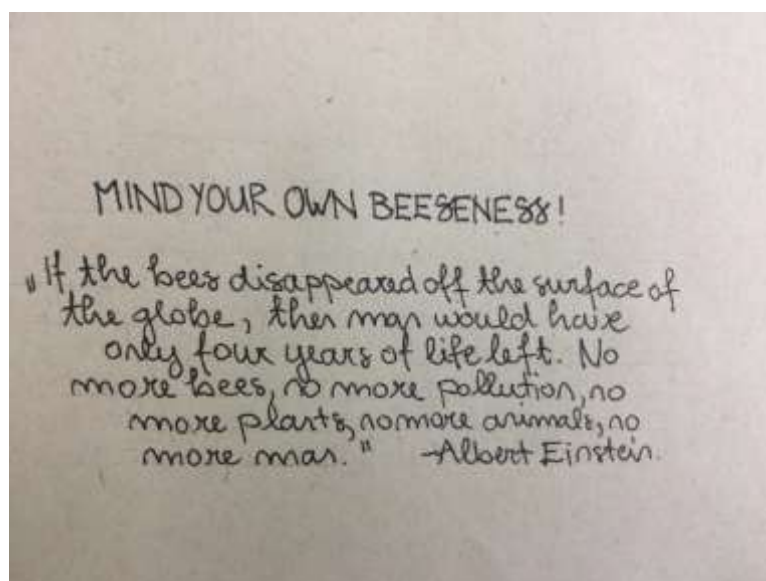 MIND YOUR OWN BEESENESS!
„If the bees disappeared off the surface of
the globe, then man would have
only four years of life left. No
more bees, no more pollution, no
more plants, no more animals, no
more man." -Albert Einstein.